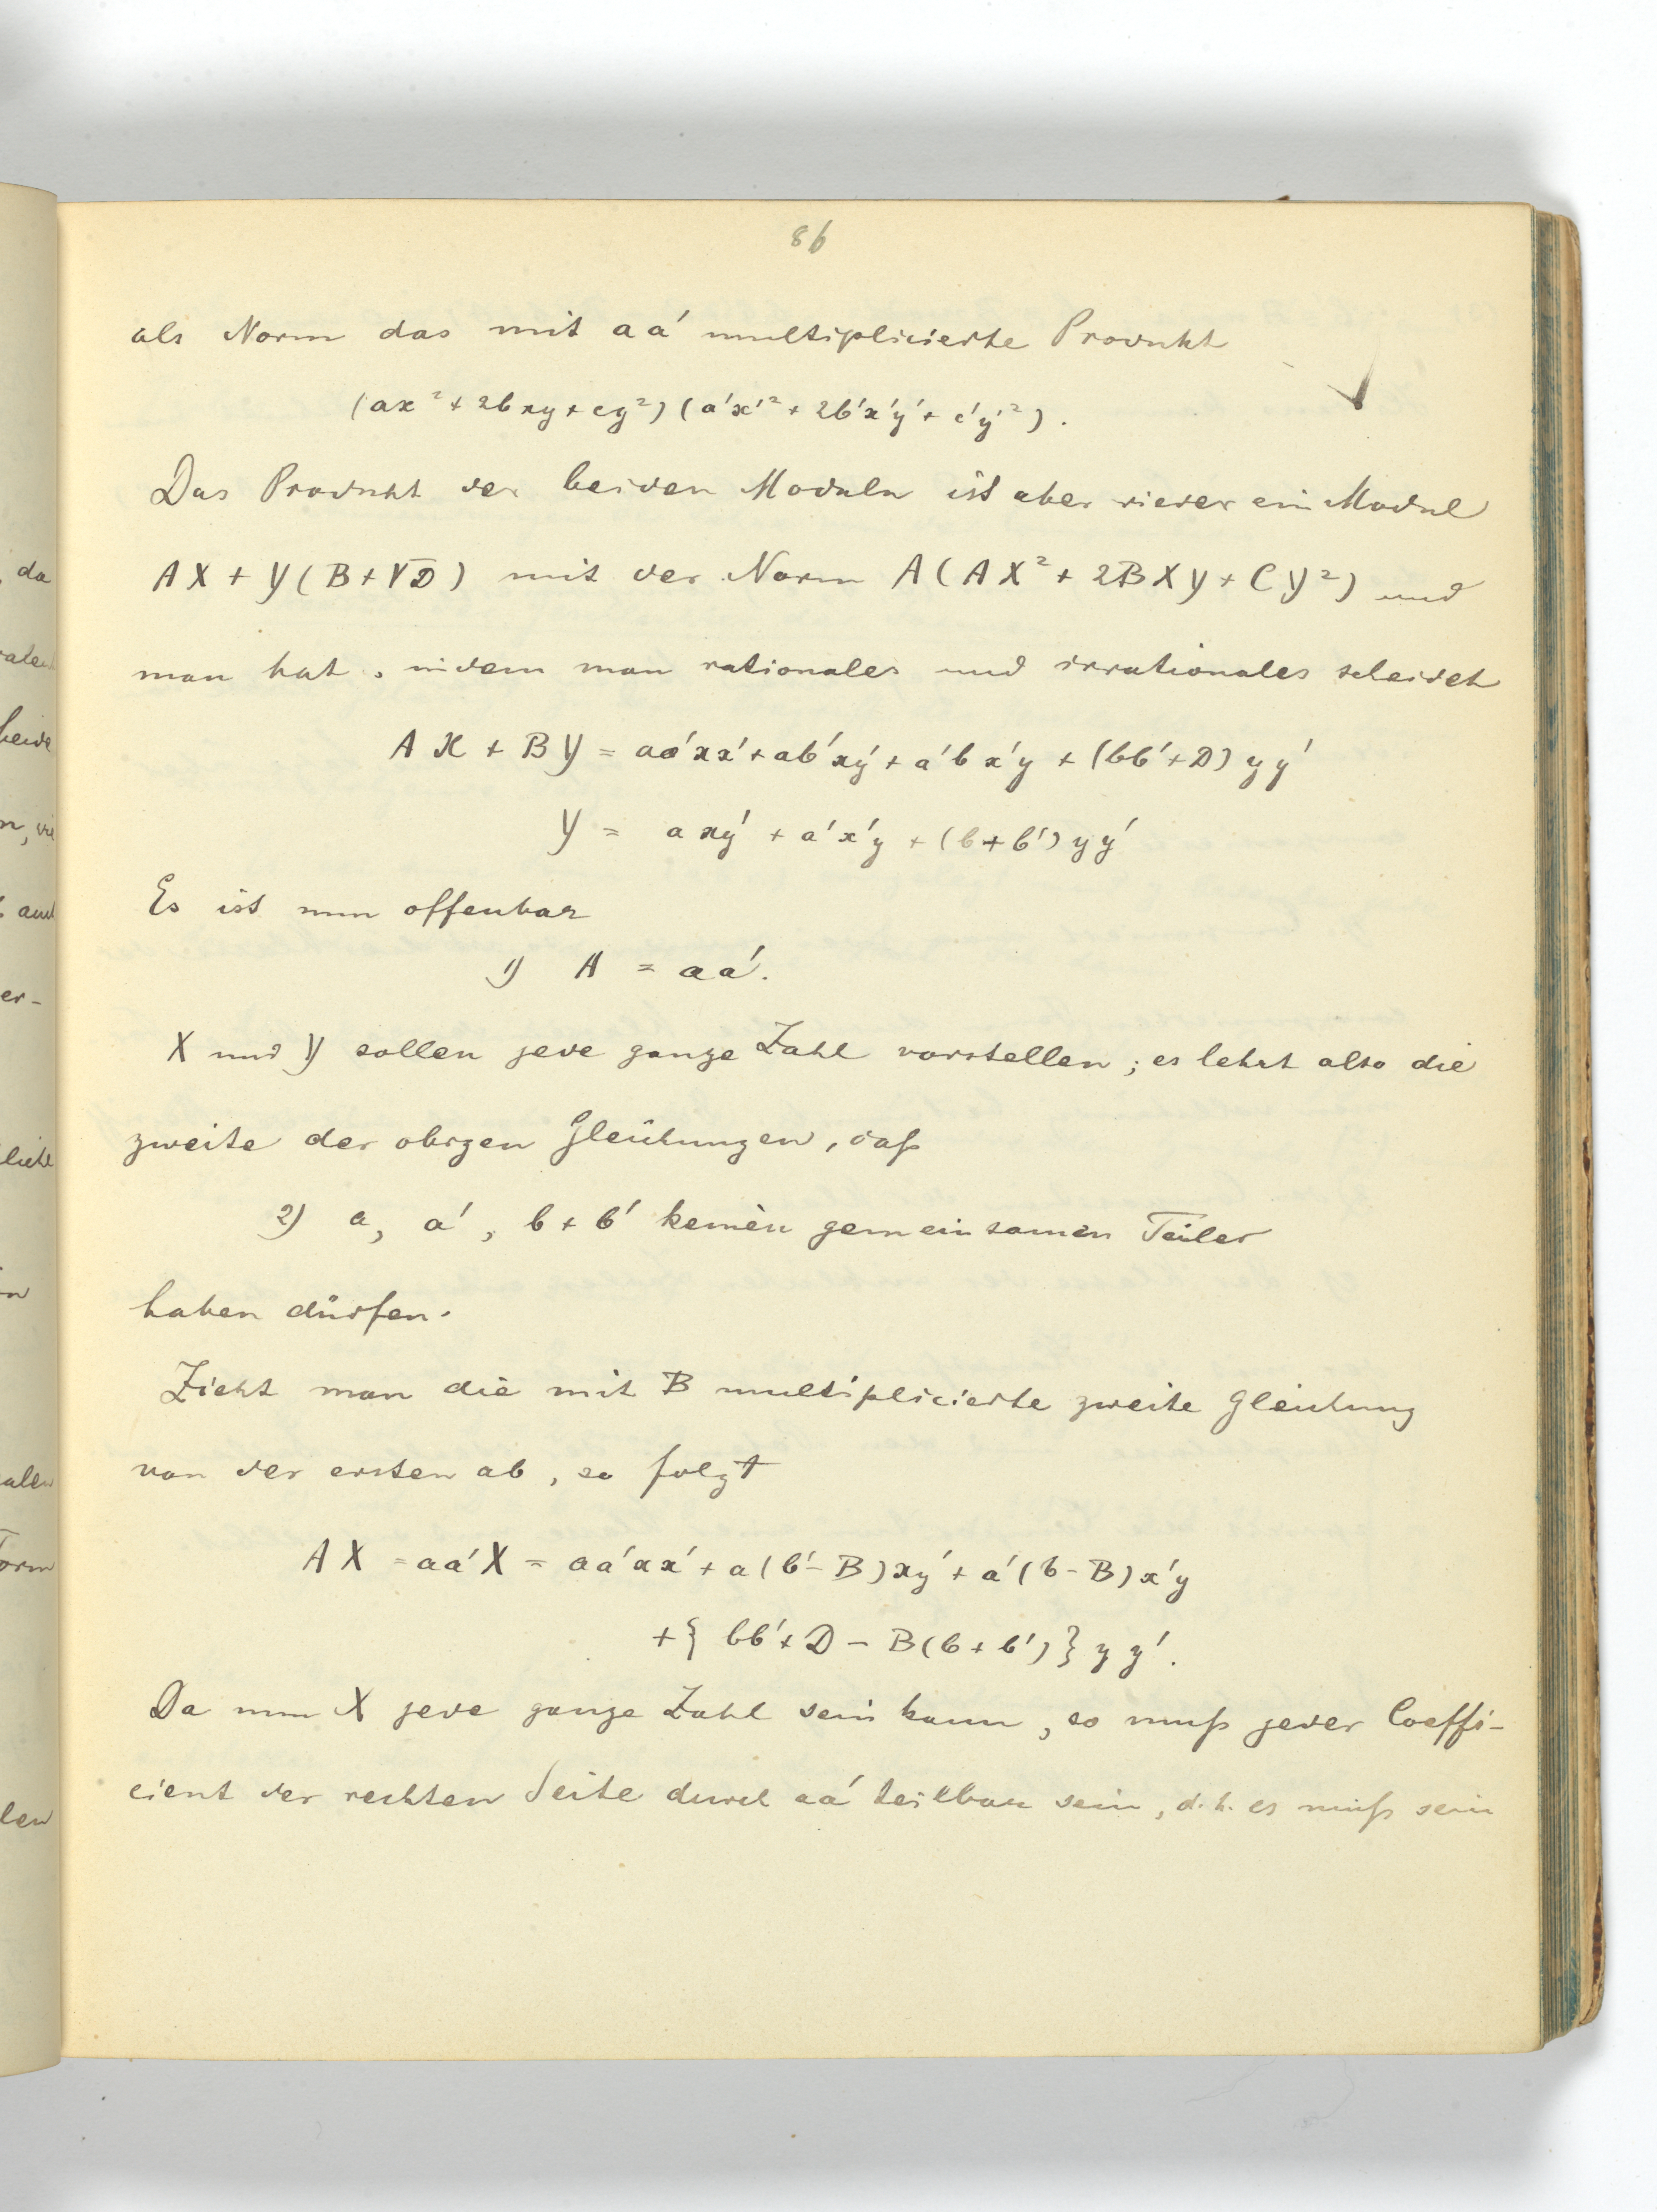 86
als Norm das mit aa' multiplicierte Produkt
(ax² + 2bxy + cy²) (a'x'² + 2b'x'y' + c'y'²).
Das Produkt der beiden Moduln ist aber wieder ein Modul
AX + Y(B+√D) mit der Norm A(AX² + 2BXY + CY²) und
man hat, indem man rationales und irrationales scheidet
AX + BY = aa'xx' + ab'xy' + a'bx'y + (bb'+D)yy'
Y = axy' + a'x'y + (b+b')yy'
Es ist nun offenbar
1) A = aa'.
X und Y sollen jede ganze Zahl vorstellen; es lehrt also die
zweite der obigen Gleichungen, daß
2) a, a', b+b' keinen gemeinsamen Teiler
haben dürfen.
Zieht man die mit B multiplicierte zweite Gleichung
von der ersten ab, so folgt
AX = aa'X = aa'xx' + a(b'-B)xy' + a'(b-B)x'y
+{bb'+D - B(b+b')}yy'.
Da nun X jede ganze Zahl sein kann, so muß jeder Coeffi-
cient der rechten Seite durch aa' teilbar sein, d.h. es muß sein
da
beide
aud
er-
alen
len